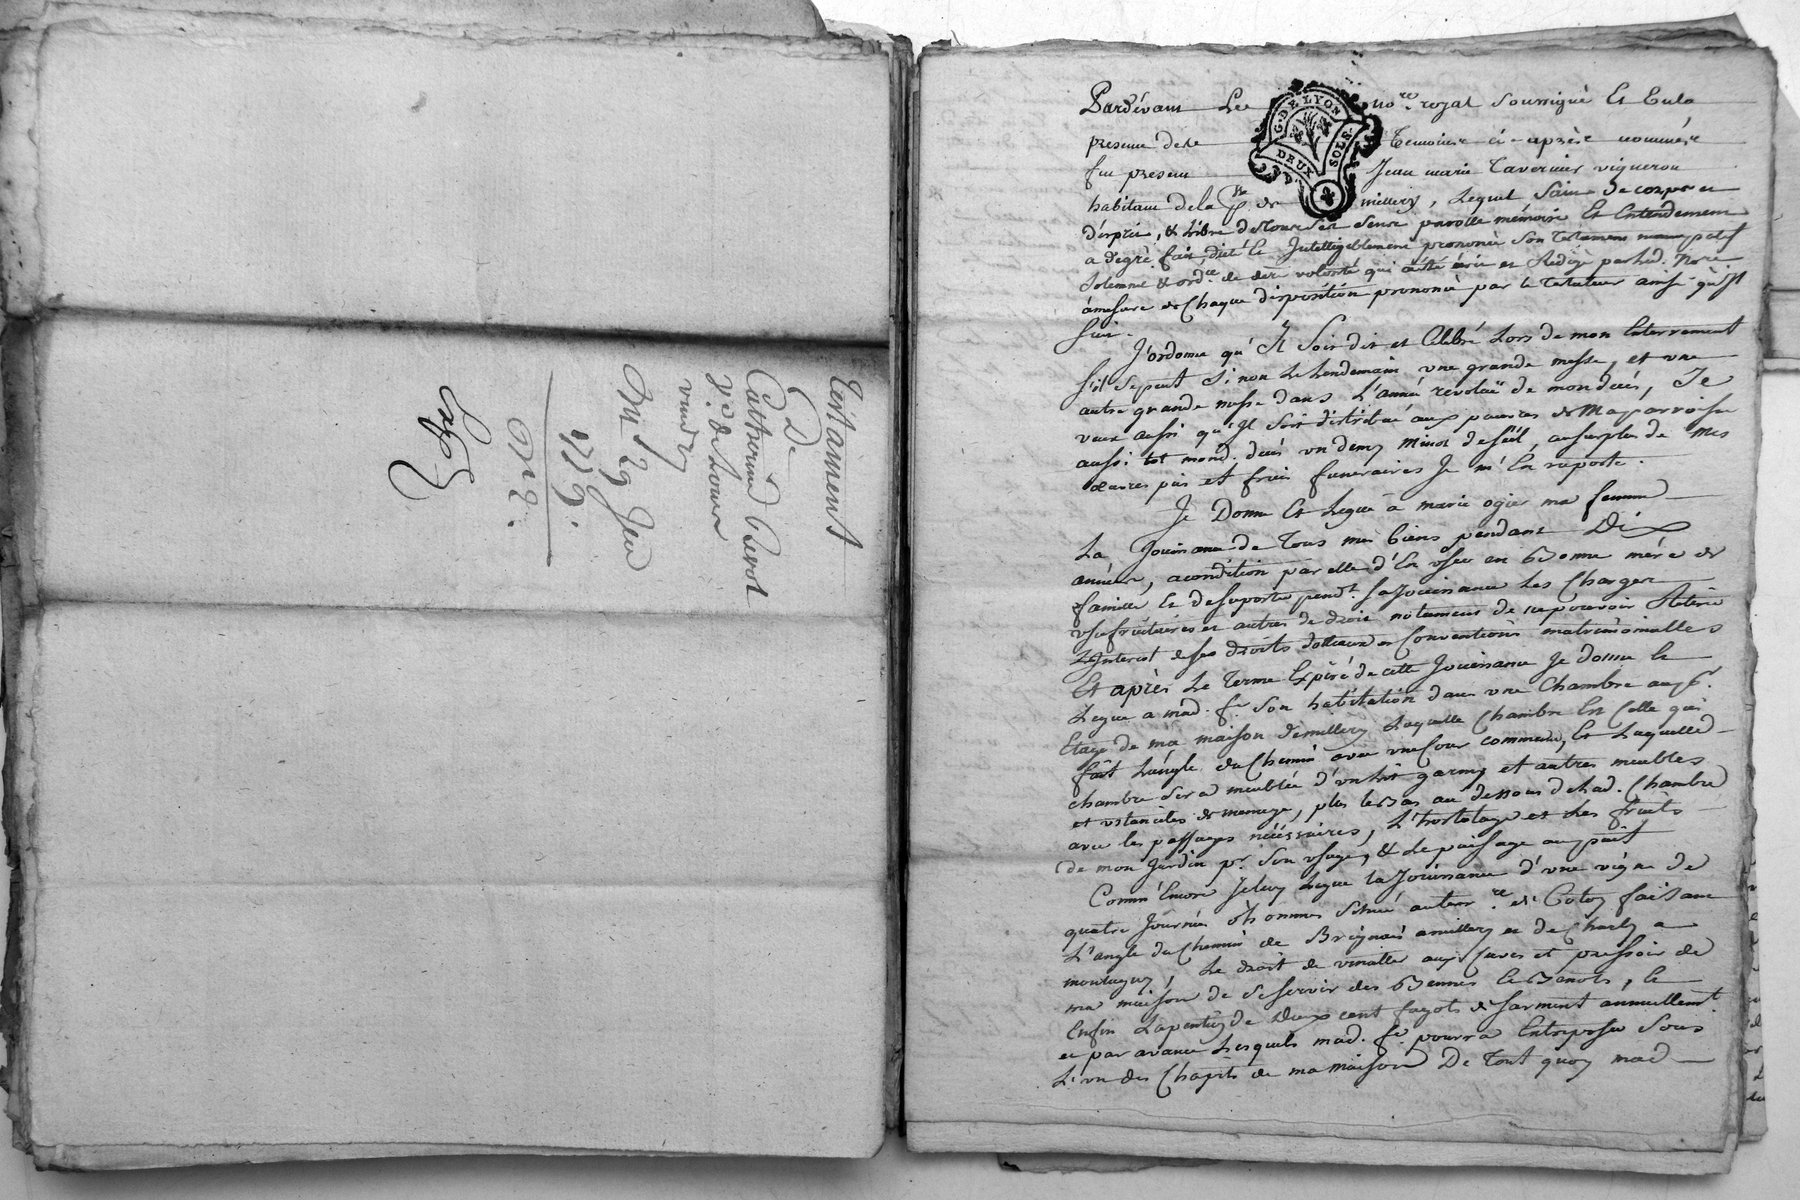 Testament
De
Catherine
v.e de
M.e 29 Jer
1779.
n.° 2.
Pardevant Le no.re royal soussigné Et En la
G. DE LYON
DEUX SOLS
presence des Temoins ci-après nommés
fut present Jean marie Tavernier vigneron
habitant de la p.sse de millery, Lequel sain de corps et
d'esprit, & Libre de tous ses sens parolle mémoire Et Entendement
a de gré fait, dicté Et Intelligiblement prononcé son testament nuncupatif
solemnel & ord.re de der.e volonté qui a été écrit et Rédigé par led. No.re
à mesure de Chaque disposition prononcé par le Testateur ainsi qu'Il
suit.
J'ordonne qu'Il soit dit et Célébré Lors de mon Enterrement
s'il se peut si non Le Lendemain une grande messe, et une
autre grande messe dans L'année revolue de mon décès, Je
veux aussi qu'Il soit distribué aux pauvres de Ma parroisse
aussi tot mond. décès un demy Minot de sel, au surplus de mes
œuvres pies et frais funeraires Je m'En raporte.
Je Donne Et Legue à marie ogier ma femme
La Jouissance de Tous mes biens pendant Dix
années, a condition par elle d'En user en Bonne mére de
famille Et de suporter pend.t sa Jouissance Les Charges
usufruitaires et autres de droit notament de ne pouvoir Retirer
L'Interest de ses droits dottaux et Conventions matrimonialles
Et après Le Terme Expiré de cette Jouissance Je donne Et
Legue a mad. fe. son habitation dans une Chambre au p.r
Etage de ma maison de millery Laquelle Chambre Est Celle qui
fait L'angle du Chemin avec une Cour commune, Et Laquelle
chambre sera meublée d'un Lit garny et autres meubles
et ustanciles de menage, plus le Bas au dessous de lad. Chambre
avec les passages nécéssaires, L'hortolage et Les fruits
de mon Jardin p.r son usage, & Le puisage au puit
Comm' Encore Je luy Legue la Jouissance d'une vigne de
quatre Journées d'hommes située au terr.re de Cotoy faisant
L'angle du Chemin de Brignais a millery et de Charly a
montagny, Le droit de vinaller aux Cuves et pressoir de
ma maison de se servir des Bennes Et Benots, Et
Enfin La pention de Deux cent fagots de sarment annuellem.t
et par avance Lesquels mad. fe. pourra Entreposer Sous
L'un des Chapits de ma maison De Tout quoy mad